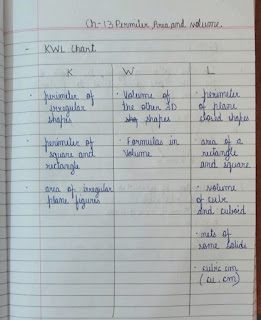 Ch-13 Perimeter Area and volume.
- KWL Chart
K W L
· perimeter of
irregular
shapes
· perimetec of
square and
rectangle
· area of irregular
plane figures
· Volume of
the other 3D
shapes
· Formulas in
volume
· perimeter
of plane
closed shapes
· area of a
rectangle
and square
· volume
of cube
and cuboid
· nets of
some solids
· cubic cm
(cu.cm)